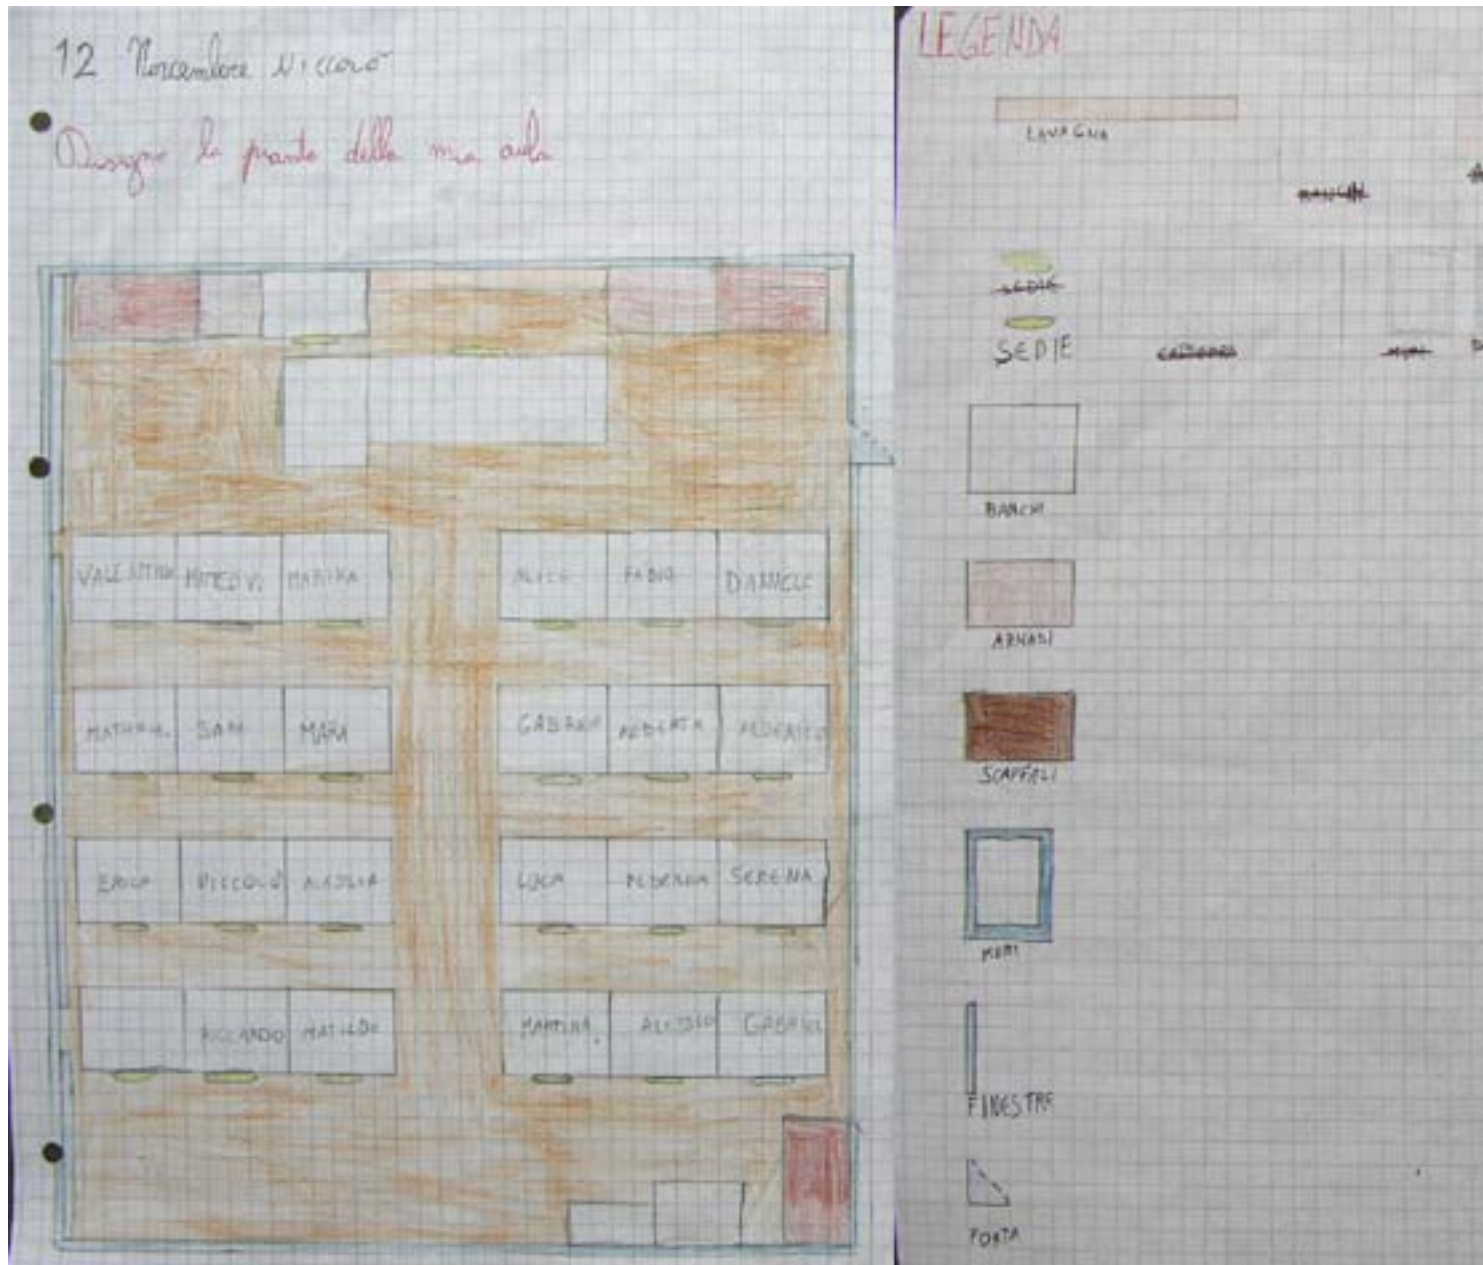 12 Novembre Niccolò
Disegno la pianta della mia aula
VALENTINA MATTEO V. MARIKA
ALICE FABIO DANIELE
SARA MARA
GABRIELE FEDERICO
ERICA NICCOLÒ
LUCA SERENA
RICCARDO MATILDE
MARTINA ALESSIO GABRIEL
LEGENDA
LAVAGNA
SEDIE
SEDIE
BANCHI
ARMADI
SCAFFALI
MURI
FINESTRE
PORTA